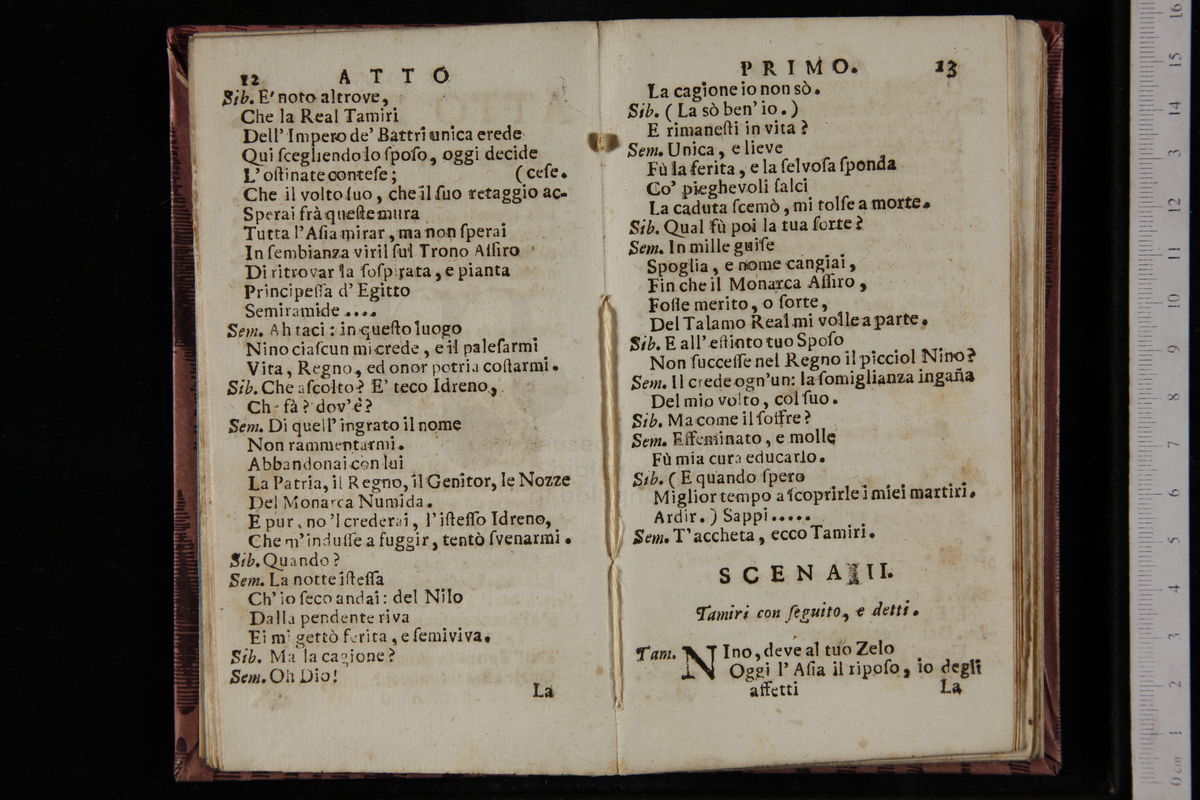 12 ATTO
Sib. E' noto altrove,
Che la Real Tamiri
Dell' Impero de' Battri unica erede
Qui ſcegliendo lo ſpoſo, oggi decide
L'oſtinate conteſe; (ceſe.
Che il volto ſuo, che il ſuo retaggio ac-
Sperai frà queſte mura
Tutta l'Aſia mirar, ma non ſperai
In ſembianza viril ſul Trono Aſſiro
Di ritrovar la ſoſpirata, e pianta
Principeſſa d' Egitto
Semiramide ....
Sem. Ah taci: in queſto luogo
Nino ciaſcun mi crede, e il paleſarmi
Vita, Regno, ed onor potria coſtarmi.
Sib. Che aſcolto? E' teco Idreno,
Che fà? dov'è?
Sem. Di quell' ingrato il nome
Non rammentarmi.
Abbandonai con lui
La Patria, il Regno, il Genitor, le Nozze
Del Monarca Numida.
E pur, no 'l crederai, l'iſteſſo Idreno,
Che m'induſſe a fuggir, tentò ſvenarmi.
Sib. Quando?
Sem. La notte iſteſſa
Ch' io ſeco andai: del Nilo
Dalla pendente riva
Ei mi gettò ferita, e ſemiviva.
Sib. Ma la cagione?
Sem. Oh Dio!
La
PRIMO. 13
La cagione io non sò.
Sib. (La sò ben' io.)
E rimaneſti in vita?
Sem. Unica, e lieve
Fù la ferita, e la ſelvoſa ſponda
Co' pieghevoli ſalci
La caduta ſcemò, mi tolſe a morte.
Sib. Qual fù poi la tua ſorte?
Sem. In mille guiſe
Spoglia, e nome cangiai,
Fin che il Monarca Aſſiro,
Foſſe merito, o ſorte,
Del Talamo Real mi volle a parte.
Sib. E all' eſtinto tuo Spoſo
Non ſucceſſe nel Regno il picciol Nino?
Sem. Il crede ogn'un: la ſomiglianza ingaña
Del mio volto, col ſuo.
Sib. Ma come il ſoffre?
Sem. Effeminato, e molle
Fù mia cura educarlo.
Sib. (E quando ſpero
Miglior tempo a ſcoprirle i miei martiri.
Ardir.) Sappi.....
Sem. T'accheta, ecco Tamiri.
SCENA III.
Tamiri con ſeguito, e detti.
Tam. NIno, deve al tuo Zelo
Oggi l' Aſia il ripoſo, io degli
affetti La